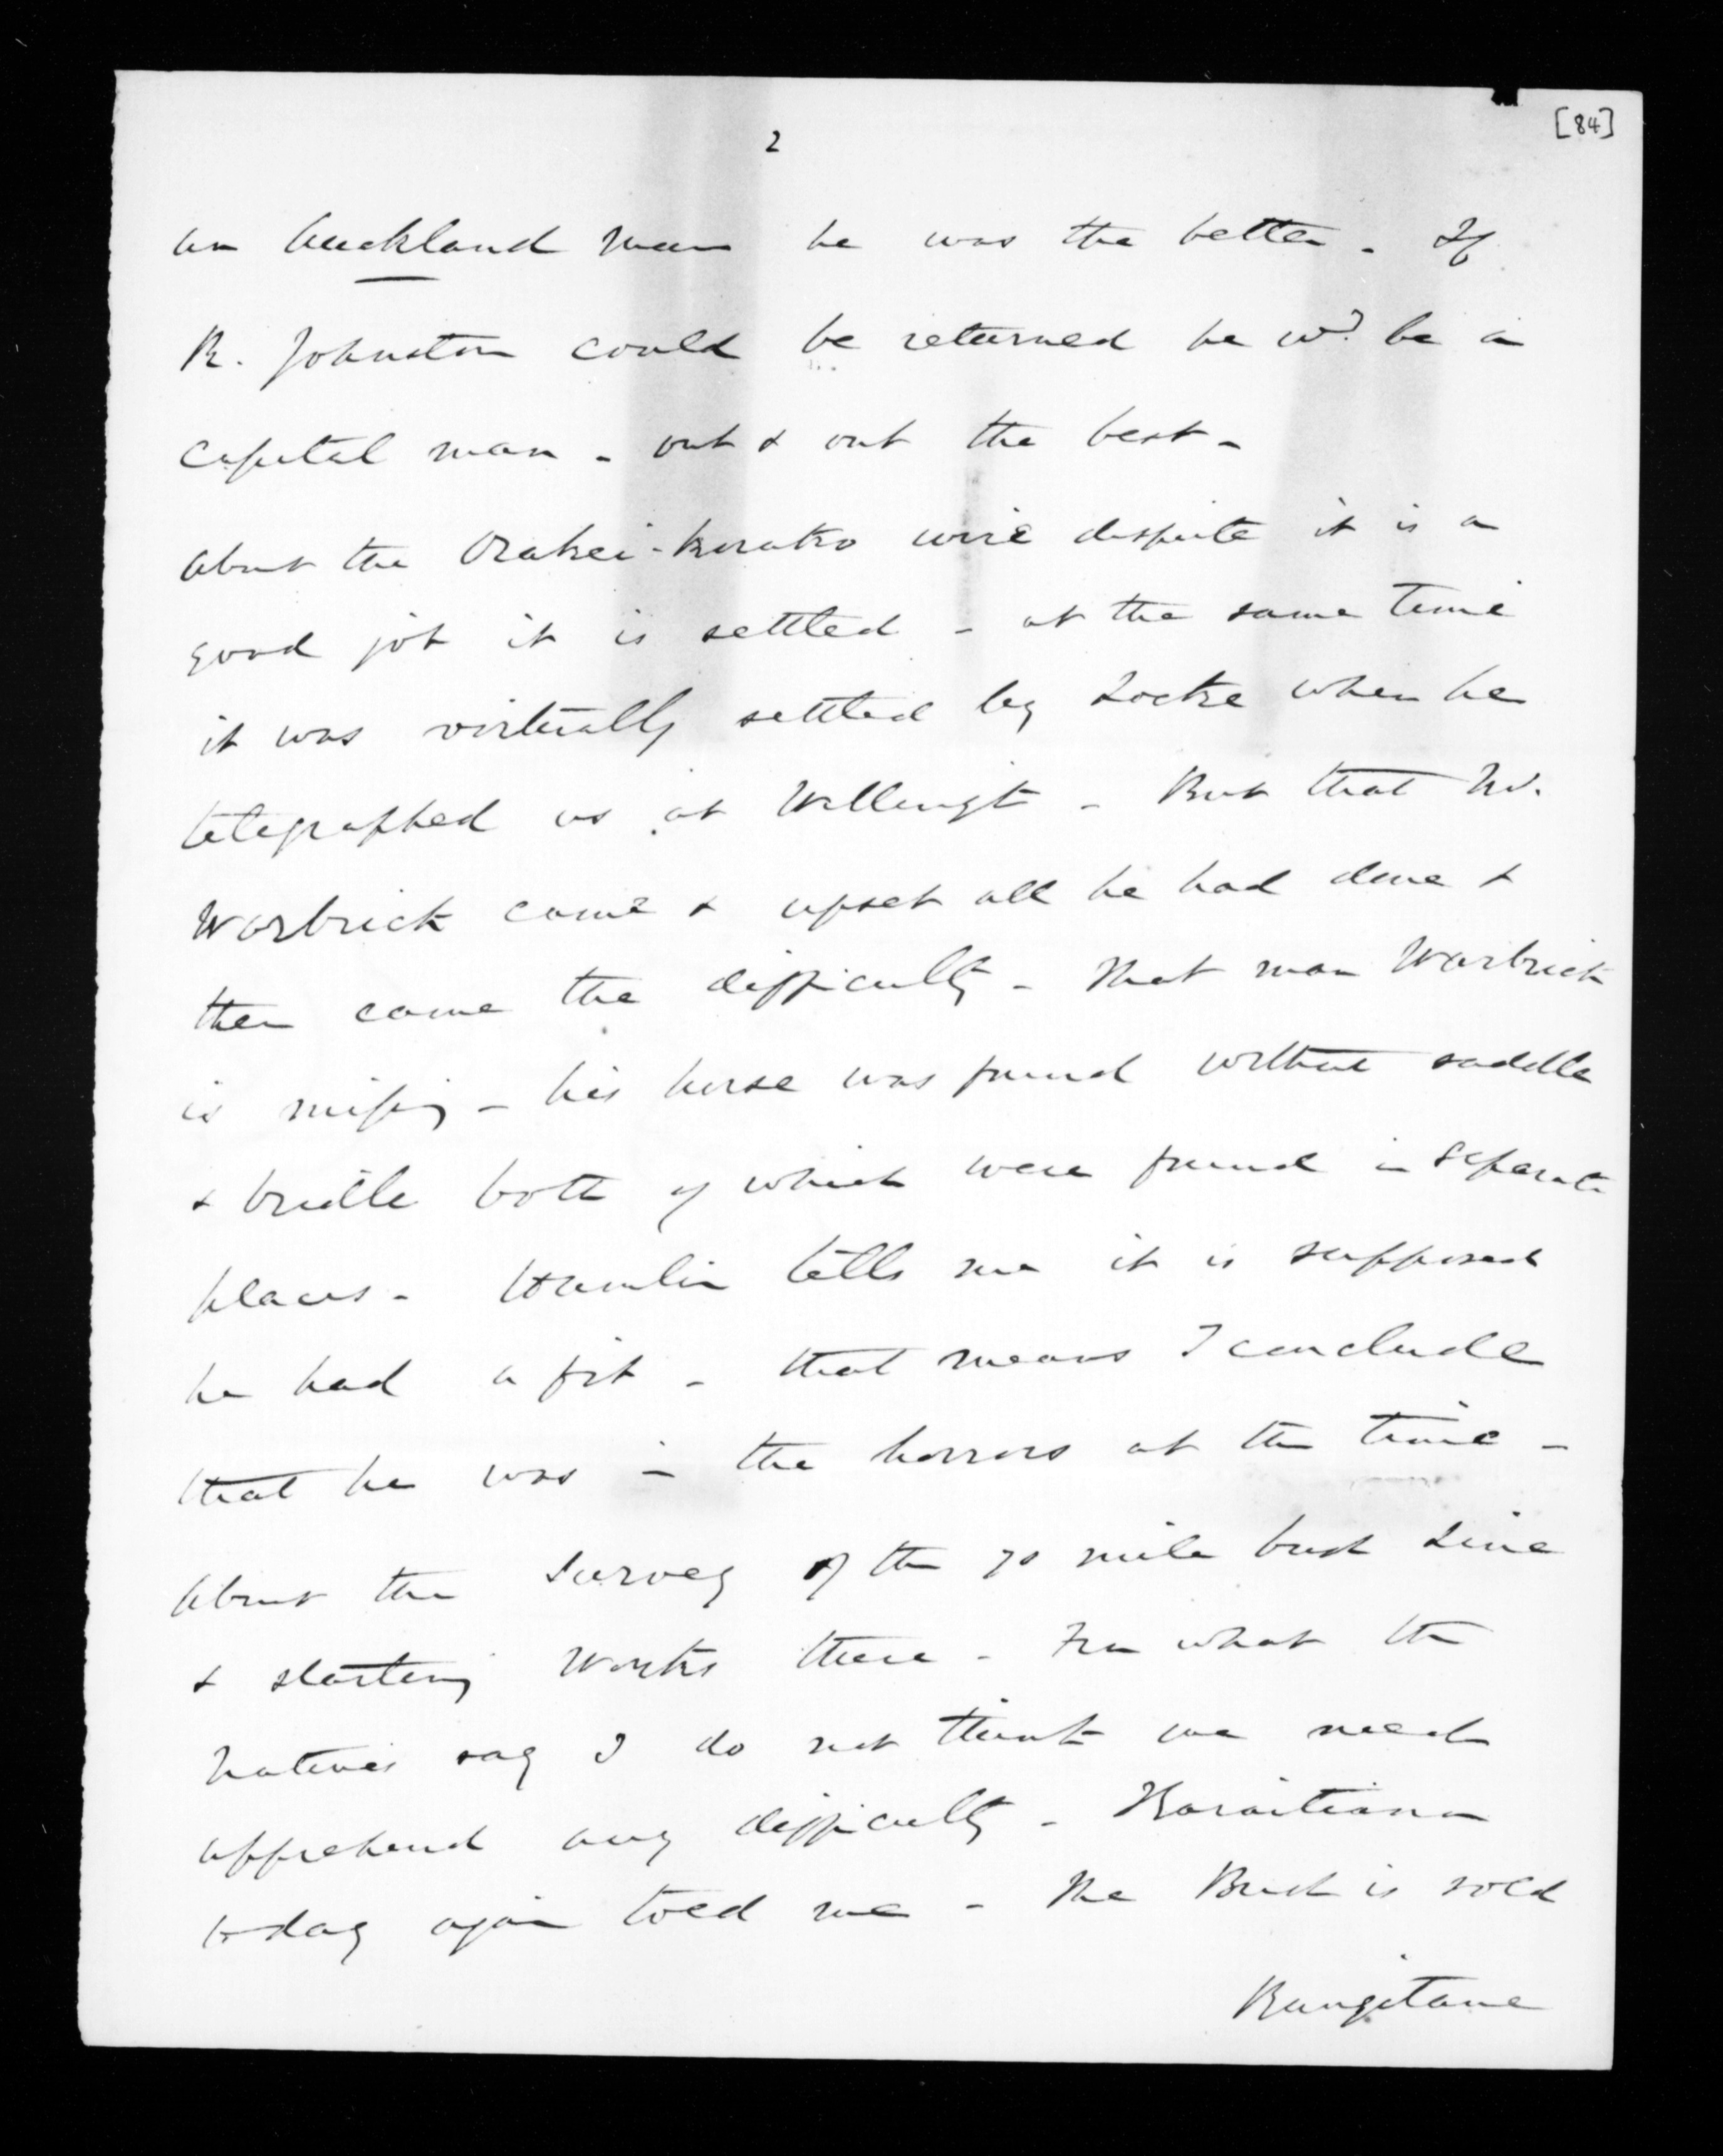 2
[84]
an Auckland man he was the better - If
R. Johnston could be returned he wd. be a
capital man - out & out the best -
About the Orakei-Korako wire dispute it is a
good job it is settled - at the same time
it was virtually settled by Locke when he
telegraphed us at Wellingt - But that
Warbrick came & upset all he had done &
then came the difficulty - That man Warbrick
is missing - his horse was found without saddle
& bridle both of which were found in separate
places - Hamlin tells me it is supposed
he had a fit - that means I conclude
that he was in the horrors at the time -
About the Survey of the 70 mile bush Line
& starting works there - From what the
Natives say I do not think we need
apprehend any difficulty - Karaitiana
to-day again told me - The Bush is sold
Rangitane